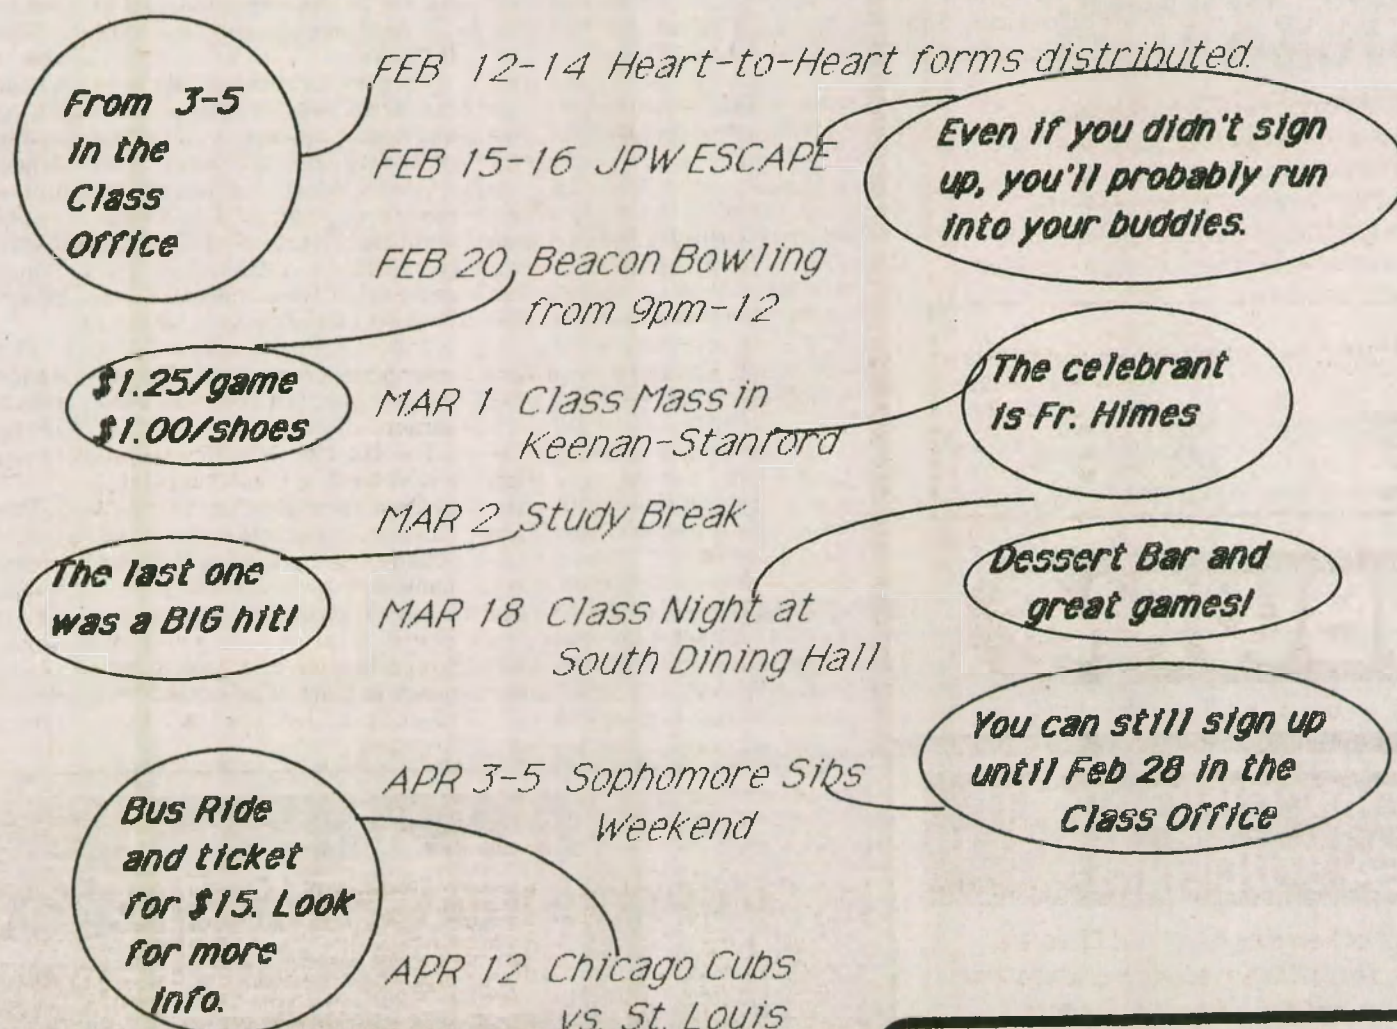 FEB 12-14 Heart-to-Heart forms distributed.
From 3-5
in the
Class
Office
FEB 15-16 JPW ESCAPE
Even if you didn't sign
up, you'll probably run
into your buddies.
FEB 20, Beacon Bowling
from 9pm-12
$1.25/game
$1.00/shoes
MAR 1 Class Mass in
Keenan-Stanford
The celebrant
is Fr. Himes
MAR 2 Study Break
The last one
was a BIG hit!
MAR 18 Class Night at
South Dining Hall
Dessert Bar and
great games!
APR 3-5 Sophomore Sibs
Weekend
You can still sign up
until Feb 28 in the
Class Office
Bus Ride
and ticket
for $15. Look
for more
info.
APR 12 Chicago Cubs
vs. St. Louis